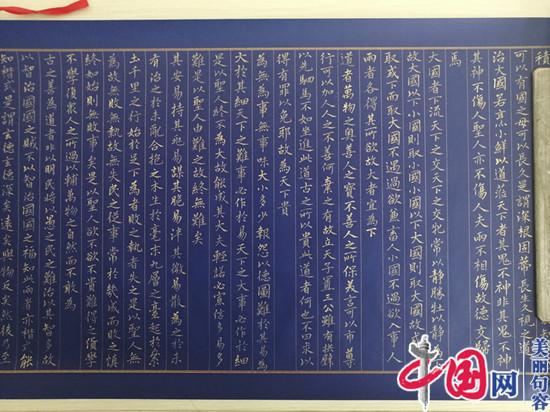 積
可以有國有國之母可以長久是謂深根固蒂長生久視之道
治大國若烹小鮮以道莅天下者其鬼不神非其鬼不神
其神不傷人聖人亦不傷人夫兩不相傷故德交歸
焉
大國者下流天下之交天下之交牝常以靜勝牡以靜
故大國以下小國則取小國小國以下大國則取大國故或下以
取或下而取大國不過欲兼畜人小國不過欲入事人
兩者各得其所欲故大者宜為下
道者萬物之奧善人之寶不善人之所保美言可以市尊
行可以加人人之不善何棄之有故立天子置三公雖有拱璧
以先駟馬不如坐進此道古之所以貴此道者何也不曰求以
得有罪以免耶故為天下貴
為無為事無事味大小多少報怨以德圖難於其易為
大於其細天下之難事必作於易天下之大事必作於細
是以聖人終不為大故能成其大夫輕諾必寡信多易多
難是以聖人由難之故終無難矣
其安易持其兆易謀其脆易泮其微易散為之於未
有治之於未亂合抱之木生於毫末九層之臺起於累
土千里之行始於足下為者敗之執者失之是以聖人無
為故無敗無執故無失民之從事常於幾成而敗之慎
終如始則無敗事矣是以聖人欲不欲不貴難得之貨學
不學復衆人之所過以輔萬物之自然而不敢為
古之善為道者非以明民將以愚之民之難治以其智多故
以智治國國之賊不以智治國國之福知此兩者亦楷式能
知楷式是謂玄德玄德深矣遠矣與物反矣然後乃至
中国网
美丽句容